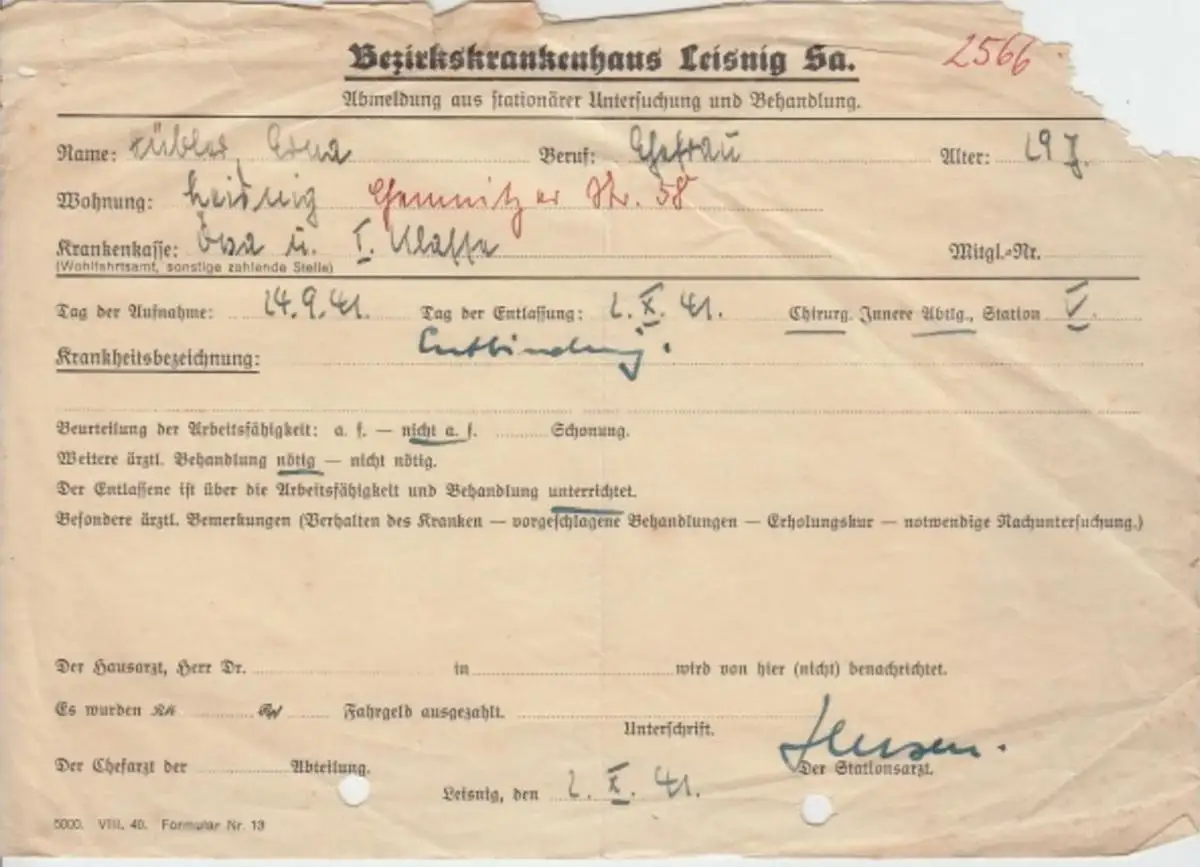 Bezirkskrankenhaus Leisnig Sa.
2566
Abmeldung aus stationärer Untersuchung und Behandlung.
Name: Erna Beruf: Ehefrau Alter: 29 J.
Wohnung: Leisnig Chemnitzer Str. 58
Krankenkasse: u. I. Klasse Mitgl.-Nr.
(Wohlfahrtsamt, sonstige zahlende Stelle)
Tag der Aufnahme: 24.9.41. Tag der Entlassung: 2. X. 41. Chirurg. Innere Abtlg., Station V.
Krankheitsbezeichnung: Entbindung.
Beurteilung der Arbeitsfähigkeit: a. f. — nicht a. f. Schonung.
Weitere ärztl. Behandlung nötig — nicht nötig.
Der Entlassene ist über die Arbeitsfähigkeit und Behandlung unterrichtet.
Besondere ärztl. Bemerkungen (Verhalten des Kranken — vorgeschlagene Behandlungen — Erholungskur — notwendige Nachuntersuchung.)
Der Hausarzt, Herr Dr. in wird von hier (nicht) benachrichtet.
Es wurden RM Fahrgeld ausgezahlt.
Unterschrift.
Der Chefarzt der Abteilung. Der Stationsarzt.
Leisnig, den 2. X. 41.
5000. VIII. 40. Formular Nr. 13